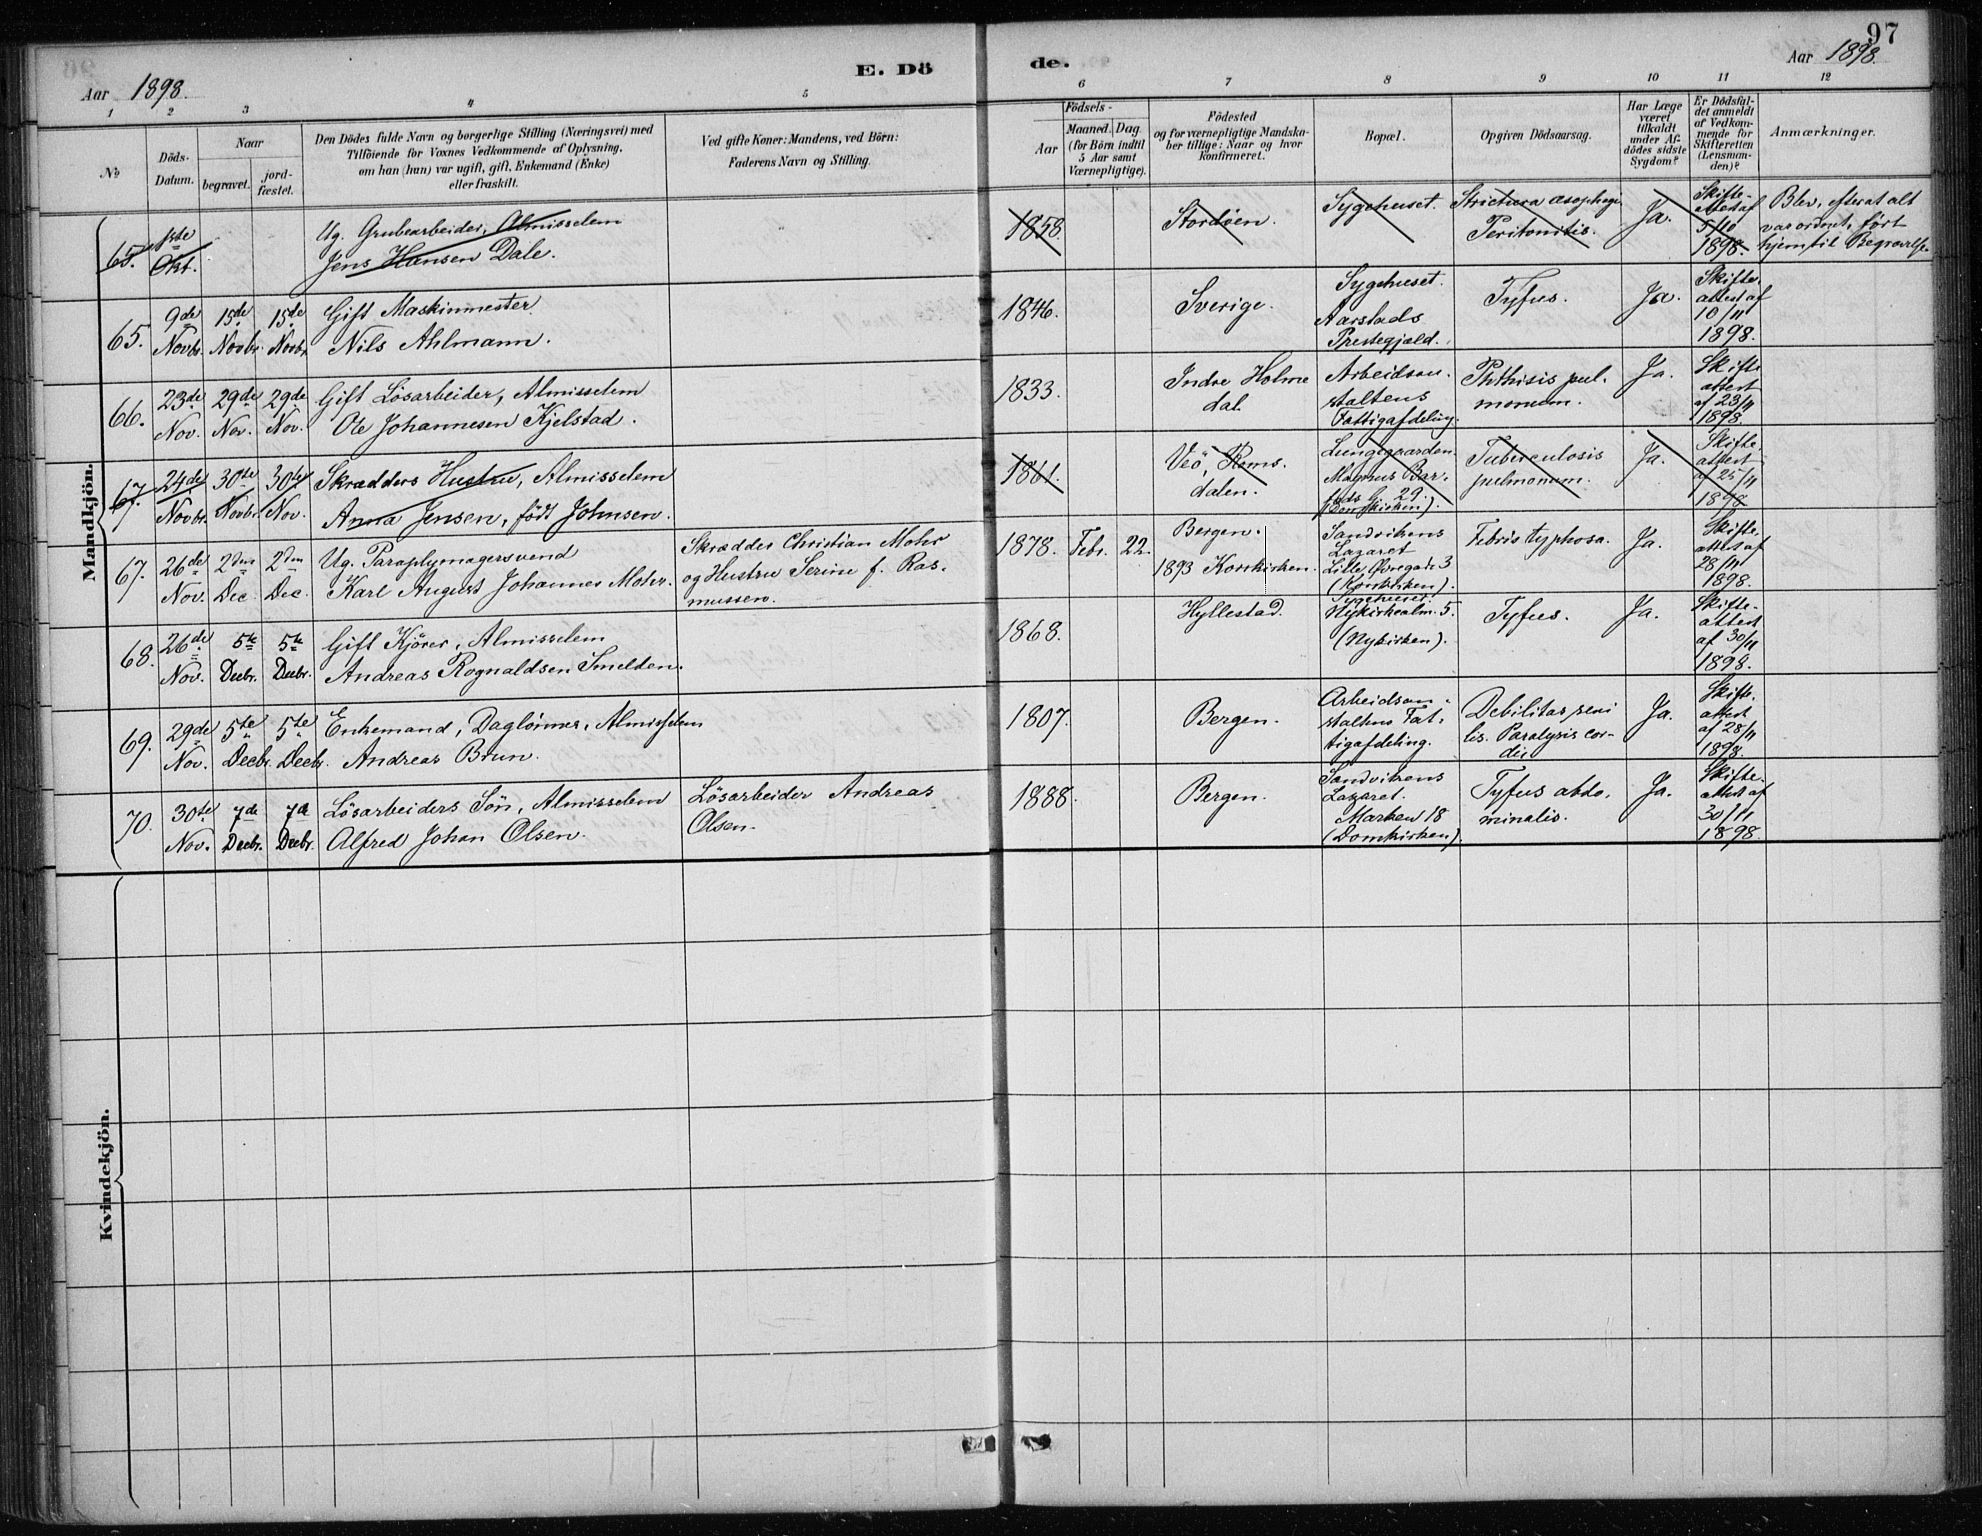 97
Aar 1898.
E. Dö
de.
Aar 1898.
1
2
3
4
5
6
7
8
9
10
11
12
№
Döds-
Datum.
Naar
begravet.
jord-
fæstet.
Den Dödes fulde Navn og borgerlige Stilling (Næringsvei) med
Tilföiende for Voxnes Vedkommende af Oplysning,
om han (hun) var ugift, gift, Enkemand (Enke)
eller fraskilt.
Ved gifte Koner: Mandens, ved Börn:
Faderens Navn og Stilling.
Födsels-
Aar
Maaned.
Dag
(for Börn indtil
5 Aar samt
Værnepligtige).
Födested
og for værnepligtige Mandska-
ber tillige: Naar og hvor
konfirmeret.
Bopæl.
Opgiven Dödsaarsag.
Har Læge
været
tilkaldt
under Af-
dödes sidste
Sygdom?
Er Dödsfal-
det anmeldt
af Vedkom-
mende for
Skifteretten
(Lensman-
den)?
Anmærkninger.
Mandkjön.
65.
1ste
Okt.
Ug. Grubearbeider, Almisselem
Jens Hansen Dale.
1858.
Stordöen.
Sygehuset.
Strictura æsophagi.
Peritonitis.
Ja.
Skifte-
attest af
5/10
1898.
Blev, efterat alt
var ordnet, ført
hjem til Begravelse.
65.
9de
Novbr.
15de
Novbr.
15de
Novbr.
Gift Maskinmester
Nils Ahlmann.
1846.
Sverige.
Sygehuset.
Aarstads
Prestegjæld.
Tyfus.
Ja.
Skifte-
attest af
10/11
1898.
66.
23de
Nov.
29de
Nov.
29de
Nov.
Gift Lösarbeider, Almisselem
Ole Johannesen Kjelstad.
1833.
Indre Holme
dal.
Arbeidsan-
staltens
Fattigafdeling.
Phthisis pul-
monum.
Ja.
Skifte
attest
af 23/11
1898.
67.
24de
Novbr.
30te
Novbr.
30te
Nov.
Skrædders Hustru, Almisselem
Anna Jensen, født Johnsen.
1861.
Veö, Roms-
dalen.
Lungegaarden.
Magnus Bar-
fods G. 29.
(Domkirken).
Tuberculosis
pulmonum.
Ja.
Skifte
attest
af 25/11
1898
67.
26de
Nov.
2den
Dec.
2den
Dec.
Ug. Paraplymagersvend
Karl August Johannes Mohr.
Skrædder Christian Mohr
og Hustru Serine f. Ras-
mussen.
1878.
Febr.
22.
Bergen.
1893 Korskirken.
Sandvikens
Lazaret
Lille Øvregade 3
(Korskirken).
Febris typhosa.
Ja.
Skifte-
attest af
28/11
1898.
68.
26de
Nov.
5te
Decbr.
5te
Decbr.
Gift Kjörer, Almisselem
Andreas Rognaldsen Smelden.
1868.
Hyllestad.
Sygehuset.
Nykirkealm. 5.
(Nykirken).
Tyfus.
Ja.
Skifte-
attest
af 30/11
1898.
69.
29de
Nov.
5te
Decbr.
5te
Decbr.
Enkemand, Daglönner, Almisselem
Andreas Brun.
1807.
Bergen.
Arbeidsan-
staltens Fat-
tigafdeling.
Debilitas seni
lis. Paralysis cor-
dis
Ja.
Skifte-
attest
af 28/11
1898.
70.
30te
Nov.
7de
Decbr.
7de
Decbr.
Lösarbeiders Sön, Almisselem
Alfred Johan Olsen.
Lösarbeider Andreas
Olsen.
1888.
Bergen.
Sandvikens
Lazaret.
Marken 18
(Domkirken).
Tyfus abdo-
minalis.
Ja.
Skifte-
attest af
30/11
1898.
Kvindekjön.